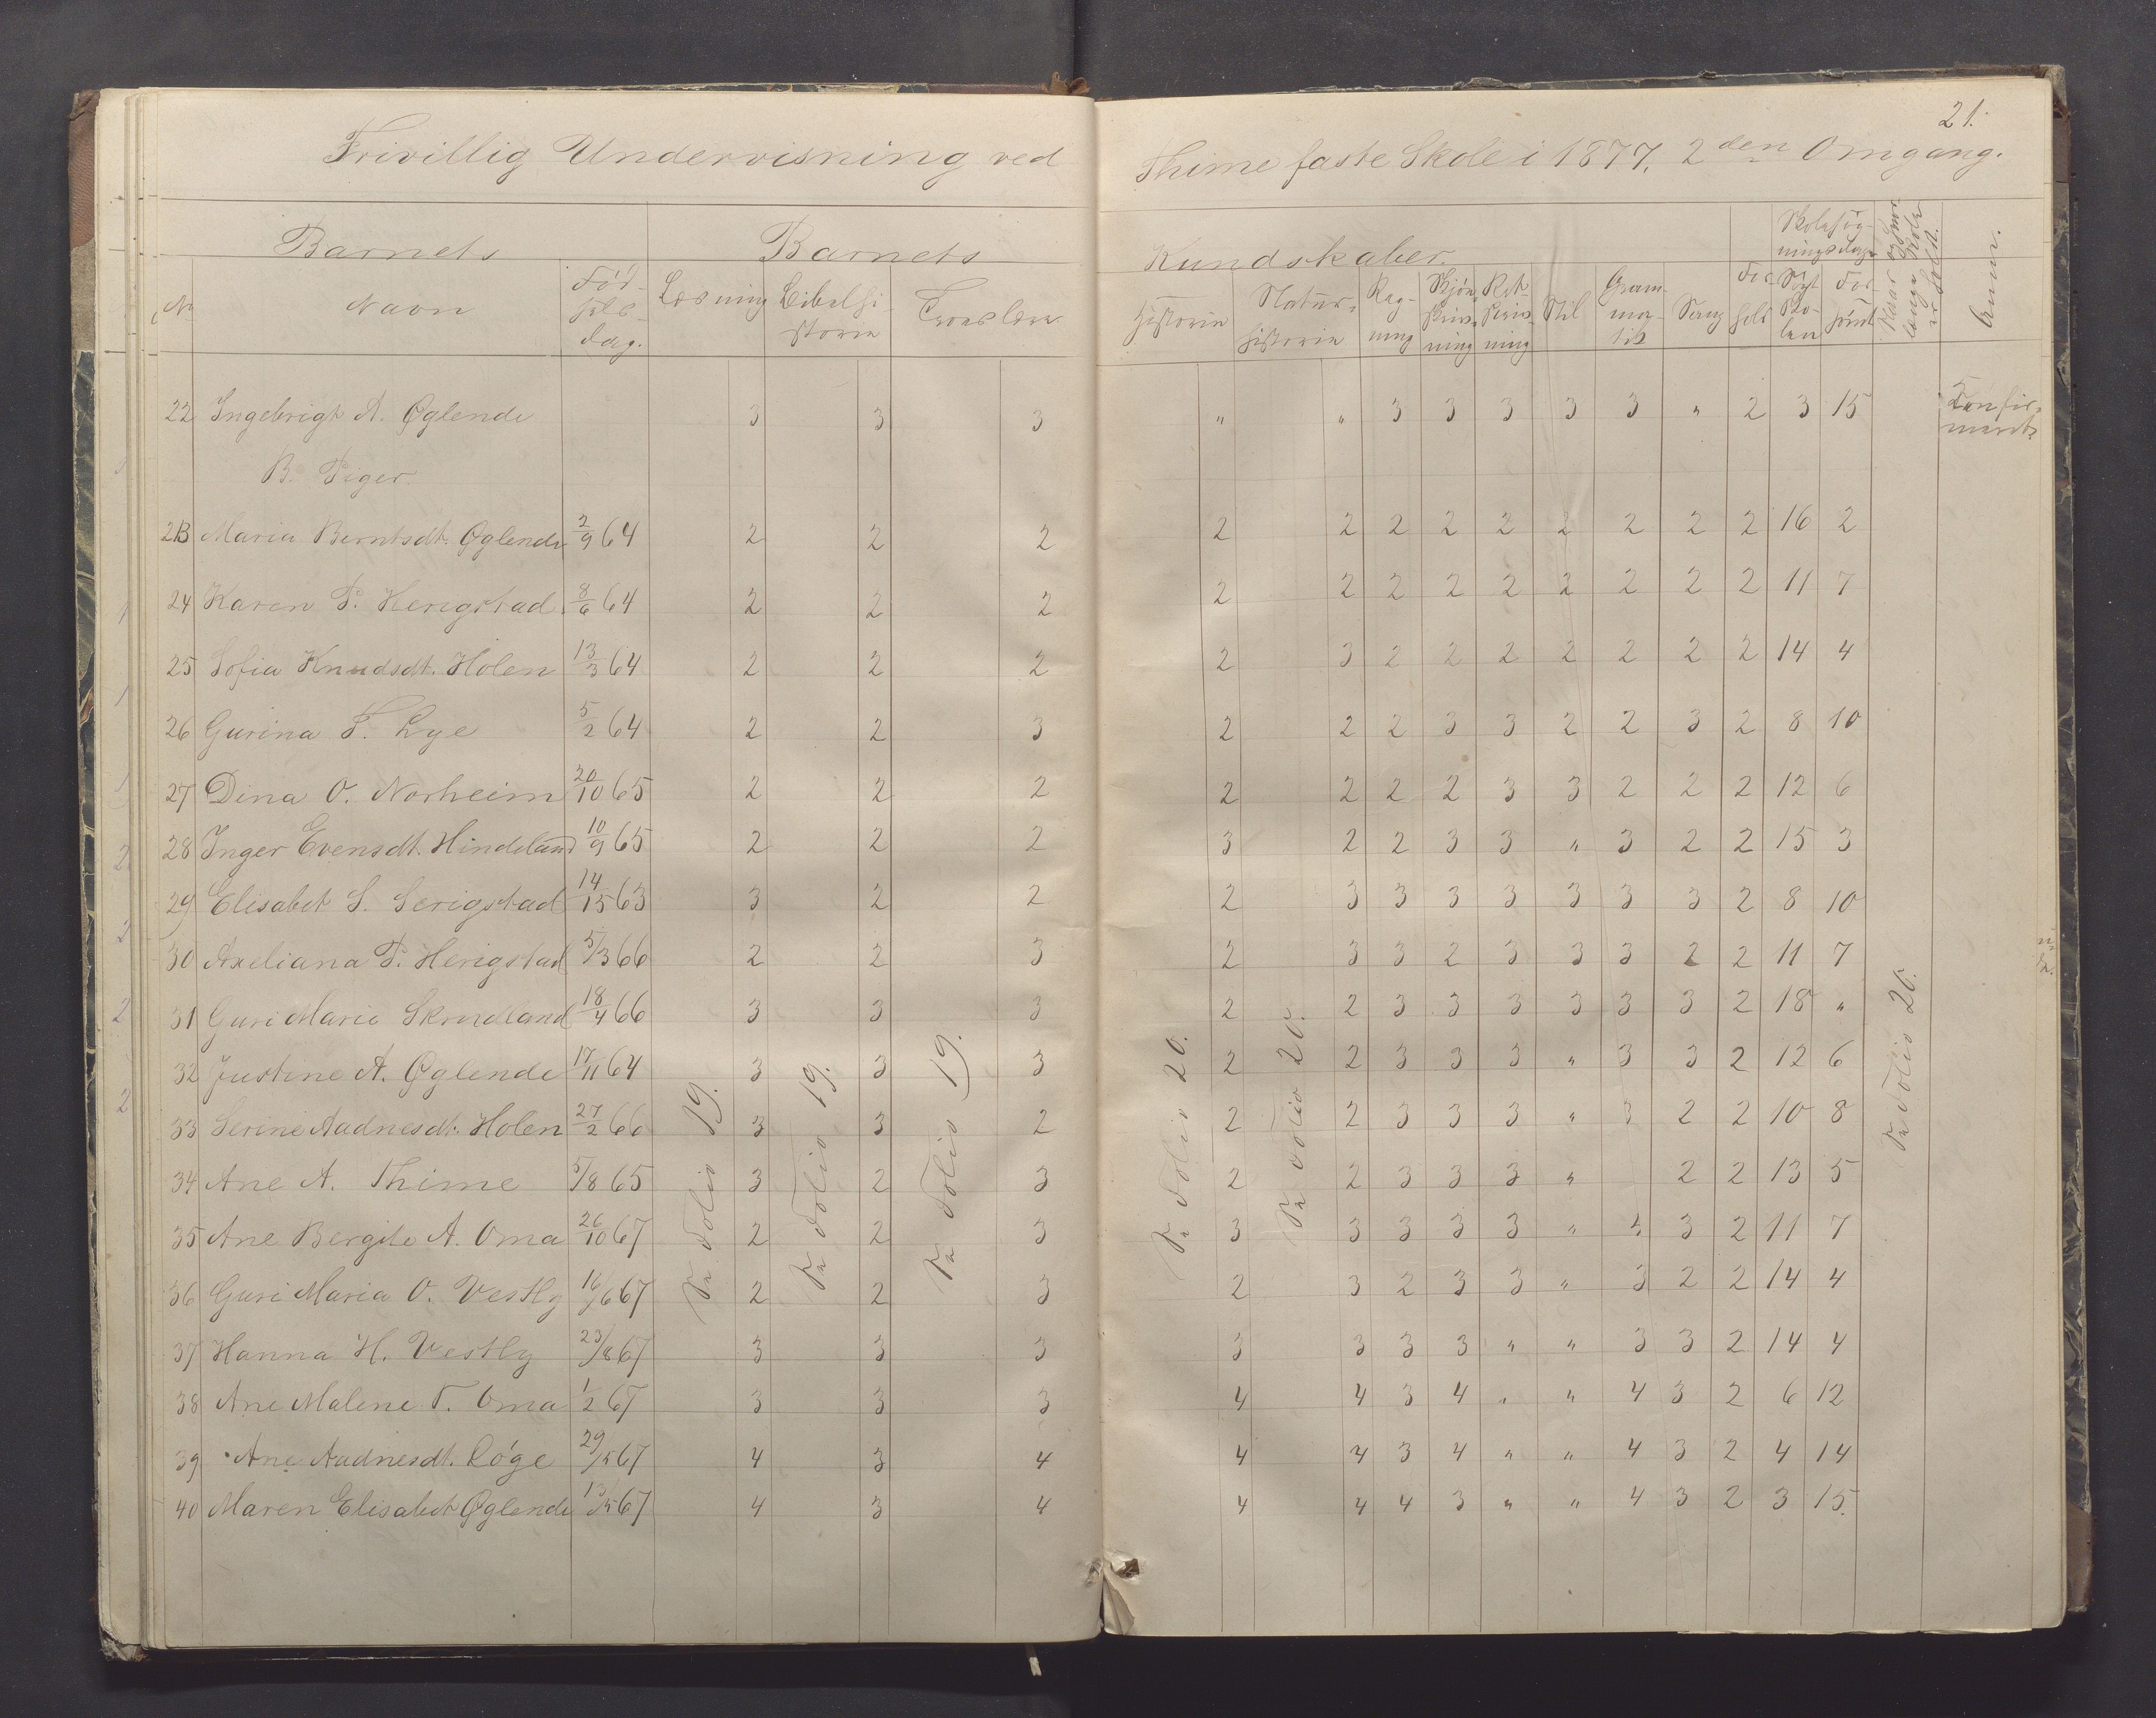 21.
Frivillig Undervisning ved Thime faste Skole i 1877, 2den Omgang.
Barnets Barnets Kundskaber.
No Navn Fødselsdag. Læsning Bibelhistorie Troeslære Historie Naturhistorie Regning Skjønskrivning Retskrivning Stil Grammatik Sang Forhold Skolesøgningsdage Søgt Skolen Forsømt Anm.
22 Ingebrigt A. Øglende 3 3 3 " " 3 3 3 3 3 " 2 3 15 Konfirmeret
B. Piger.
23 Maria Berntsdt. Øglende 2/9 64 2 2 2 2 2 2 2 2 2 2 2 2 16 2
24 Karen P. Herigstad 8/6 64 2 2 2 2 2 2 2 2 2 2 2 2 11 7
25 Sofia Knudsdt. Holen 13/3 64 2 2 2 2 3 2 2 2 2 2 2 2 14 4
26 Gurina F. Lye 5/2 64 2 2 3 2 2 2 3 3 2 2 3 2 8 10
27 Dina O. Norheim 20/10 65 2 2 2 2 2 2 2 3 3 2 2 2 12 6
28 Inger Evensdt. Hindeland 10/9 65 2 2 2 3 2 2 3 3 " 3 2 2 15 3
29 Elisabet S. Serigstad 14/15 63 3 2 2 2 3 3 3 3 3 3 3 2 8 10
30 Axeliana P. Herigstad 5/3 66 2 2 3 2 3 3 2 3 3 3 2 2 11 7
31 Guri Marie Skrudland 18/4 66 3 3 3 2 2 3 3 3 3 3 3 2 18 "
32 Justine A. Øglende 17/11 64 3 3 3 2 2 3 3 3 " 3 3 2 12 6
33 Serine Aadnesdt. Holen 27/2 66 3 3 2 2 2 3 3 3 " 3 2 2 10 8
34 Ane A. Thime 5/8 65 3 2 3 2 2 3 3 3 " 2 2 13 5
35 Ane Bergite A. Oma 26/10 67 2 2 3 3 3 3 3 3 " 4 3 2 11 7
36 Guri Maria O. Vestly 16/6 67 2 2 3 2 3 2 3 3 " 3 2 2 14 4
37 Hanna H. Vestly 23/8 67 3 3 3 3 3 3 3 " " 3 3 2 14 4
38 Ane Malene T. Oma 1/2 67 3 3 3 4 4 3 4 " " 4 3 2 6 12
39 Ane Aadnesdt. Røge 29/5 67 4 3 4 4 4 3 4 " " 4 3 2 4 14
40 Maren Elisabet Øglende 13/5 67 4 3 4 4 4 4 3 " " 4 3 2 3 15.
Se Folio 19.
Se Folio 19.
Se Folio 19.
Se Folio 20.
Se Folio 20.
Se Folio 20.